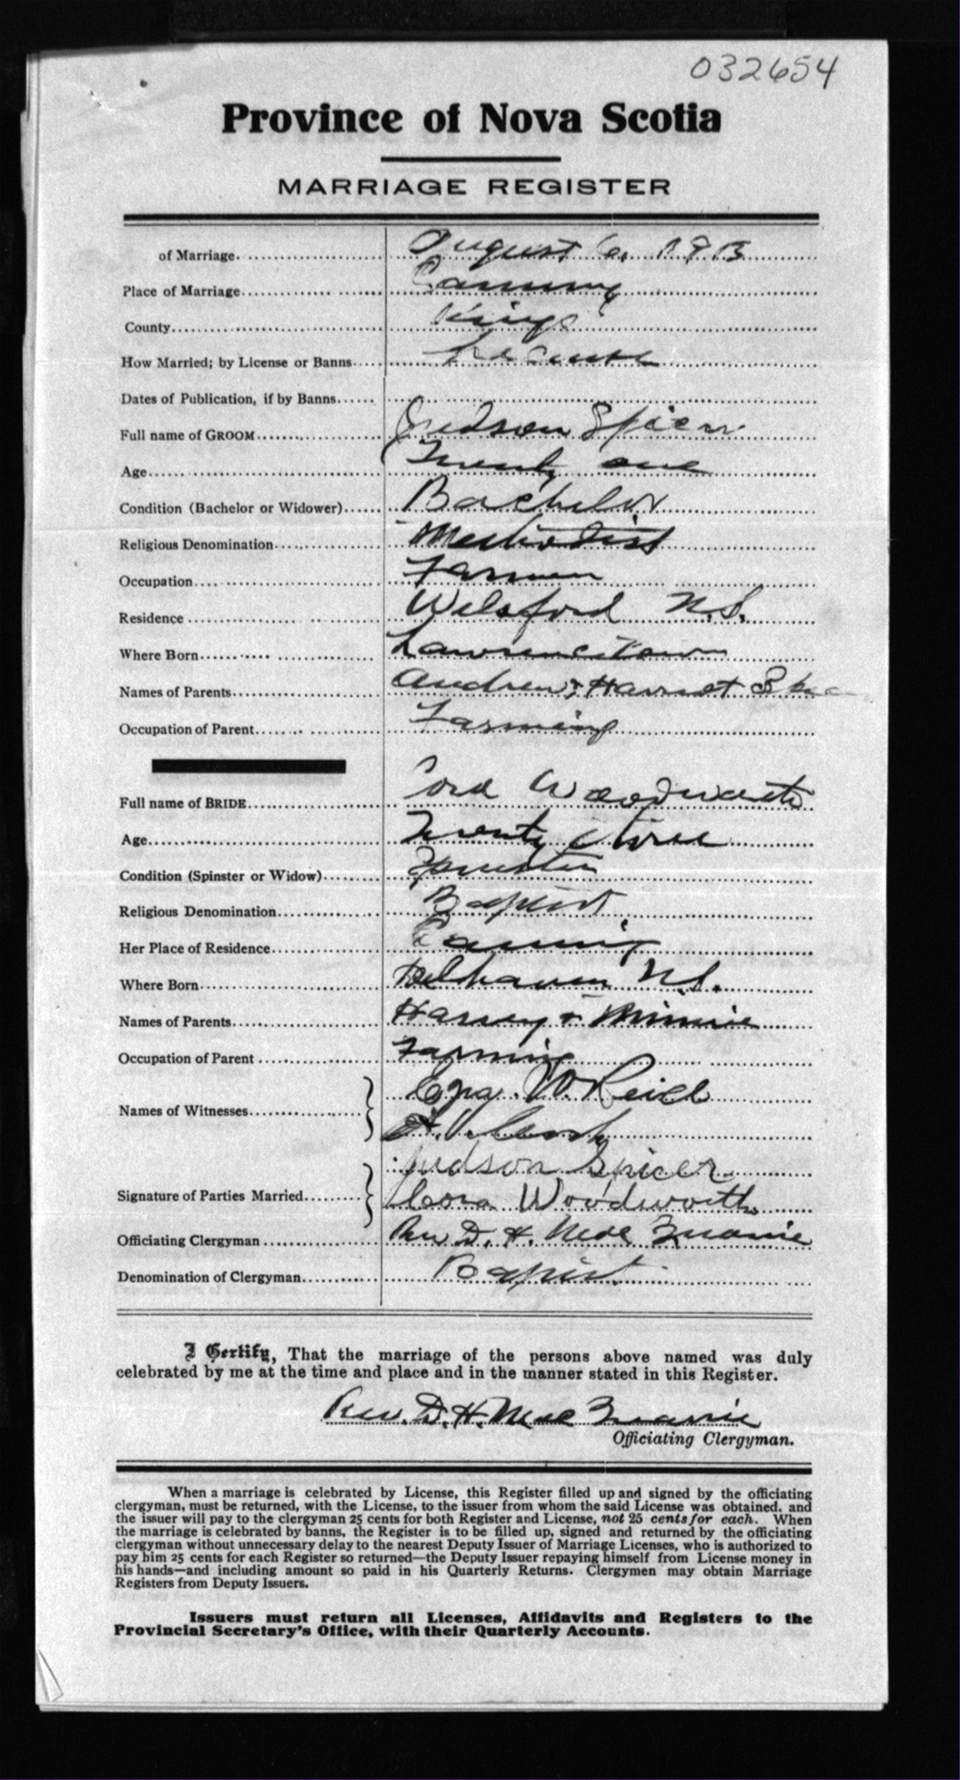 032654
Province of Nova Scotia
MARRIAGE REGISTER
of Marriage. August 6, 1913
Place of Marriage Canning
County Kings
How Married; by License or Banns License
Dates of Publication, if by Banns
Full name of GROOM Judson Spicer
Age Twenty one
Condition (Bachelor or Widower) Bachelor
Religious Denomination Methodist
Occupation Farmer
Residence Welsford N.S.
Where Born Lawrencetown
Names of Parents Andrew & Harriet
Occupation of Parent Farming
Full name of BRIDE Cora Woodworth
Age Twenty three
Condition (Spinster or Widow) Spinster
Religious Denomination Baptist
Her Place of Residence Canning
Where Born Delhaven N.S.
Names of Parents Harvey & Minnie
Occupation of Parent Farming
W. Reid
Names of Witnesses
Judson Spicer
Signature of Parties Married Cora Woodworth
Officiating Clergyman Rev D. H. MacQuarrie
Denomination of Clergyman Baptist
I Certify, That the marriage of the persons above named was duly
celebrated by me at the time and place and in the manner stated in this Register.
Rev. D. H. MacQuarrie
Officiating Clergyman.
When a marriage is celebrated by License, this Register filled up and signed by the officiating
clergyman, must be returned, with the License, to the issuer from whom the said License was obtained, and
the issuer will pay to the clergyman 25 cents for both Register and License, not 25 cents for each. When
the marriage is celebrated by banns, the Register is to be filled up, signed and returned by the officiating
clergyman without unnecessary delay to the nearest Deputy Issuer of Marriage Licenses, who is authorized to
pay him 25 cents for each Register so returned—the Deputy Issuer repaying himself from License money in
his hands—and including amount so paid in his Quarterly Returns. Clergymen may obtain Marriage
Registers from Deputy Issuers.
Issuers must return all Licenses, Affidavits and Registers to the
Provincial Secretary's Office, with their Quarterly Accounts.